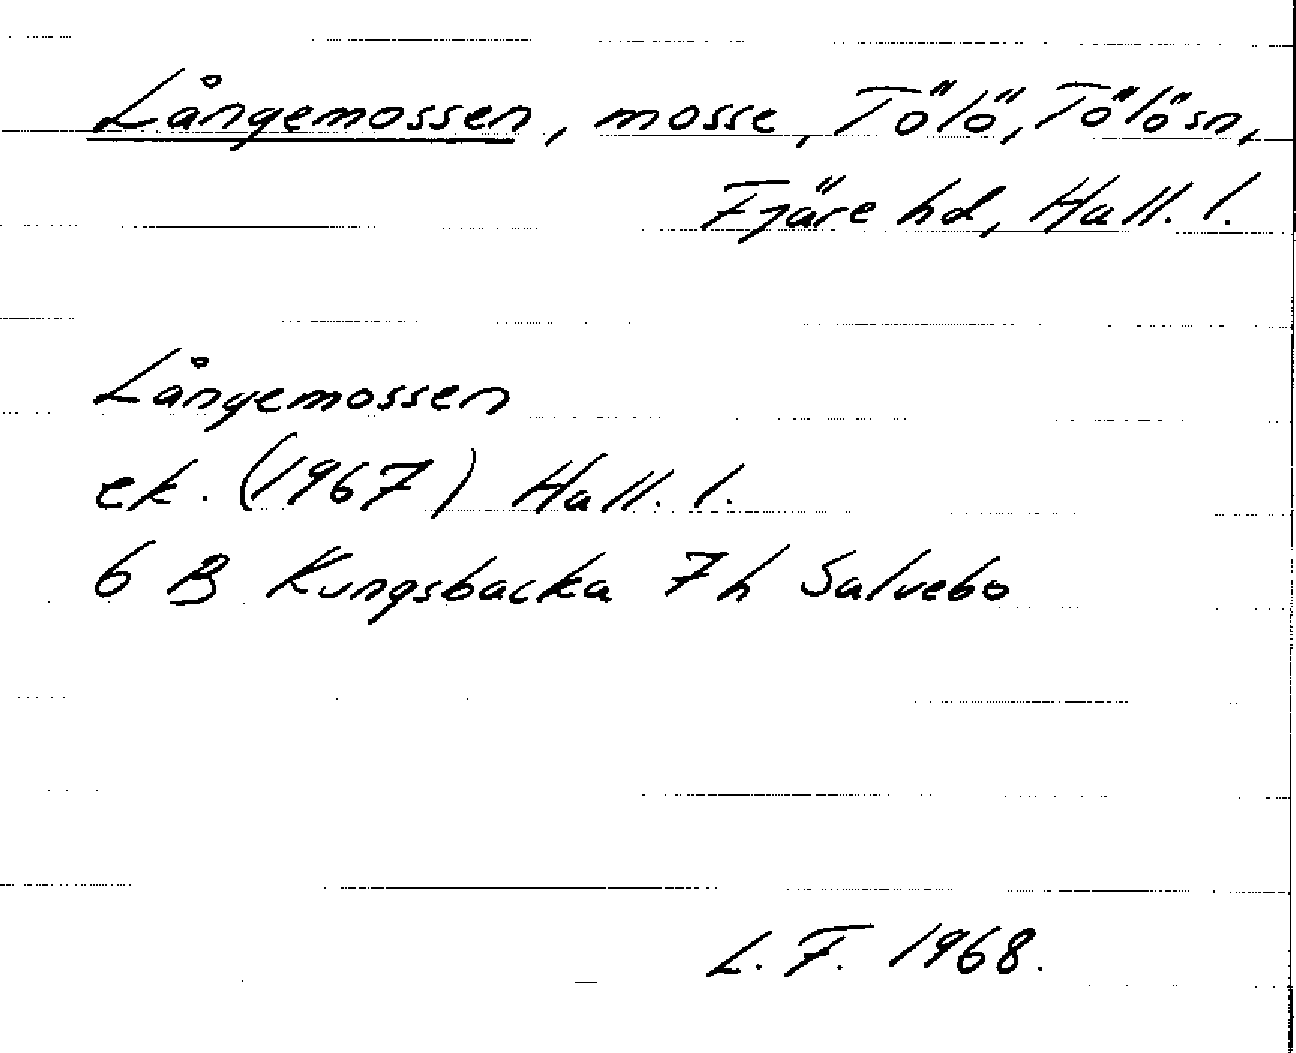 Långemossen, mosse, Tölö, Tölö sn,
Fjäre hd, Hall. l.
Långemossen
ek. (1967) Hall. l.
6 B Kungsbacka 7 h Salvebo
L. F. 1968.